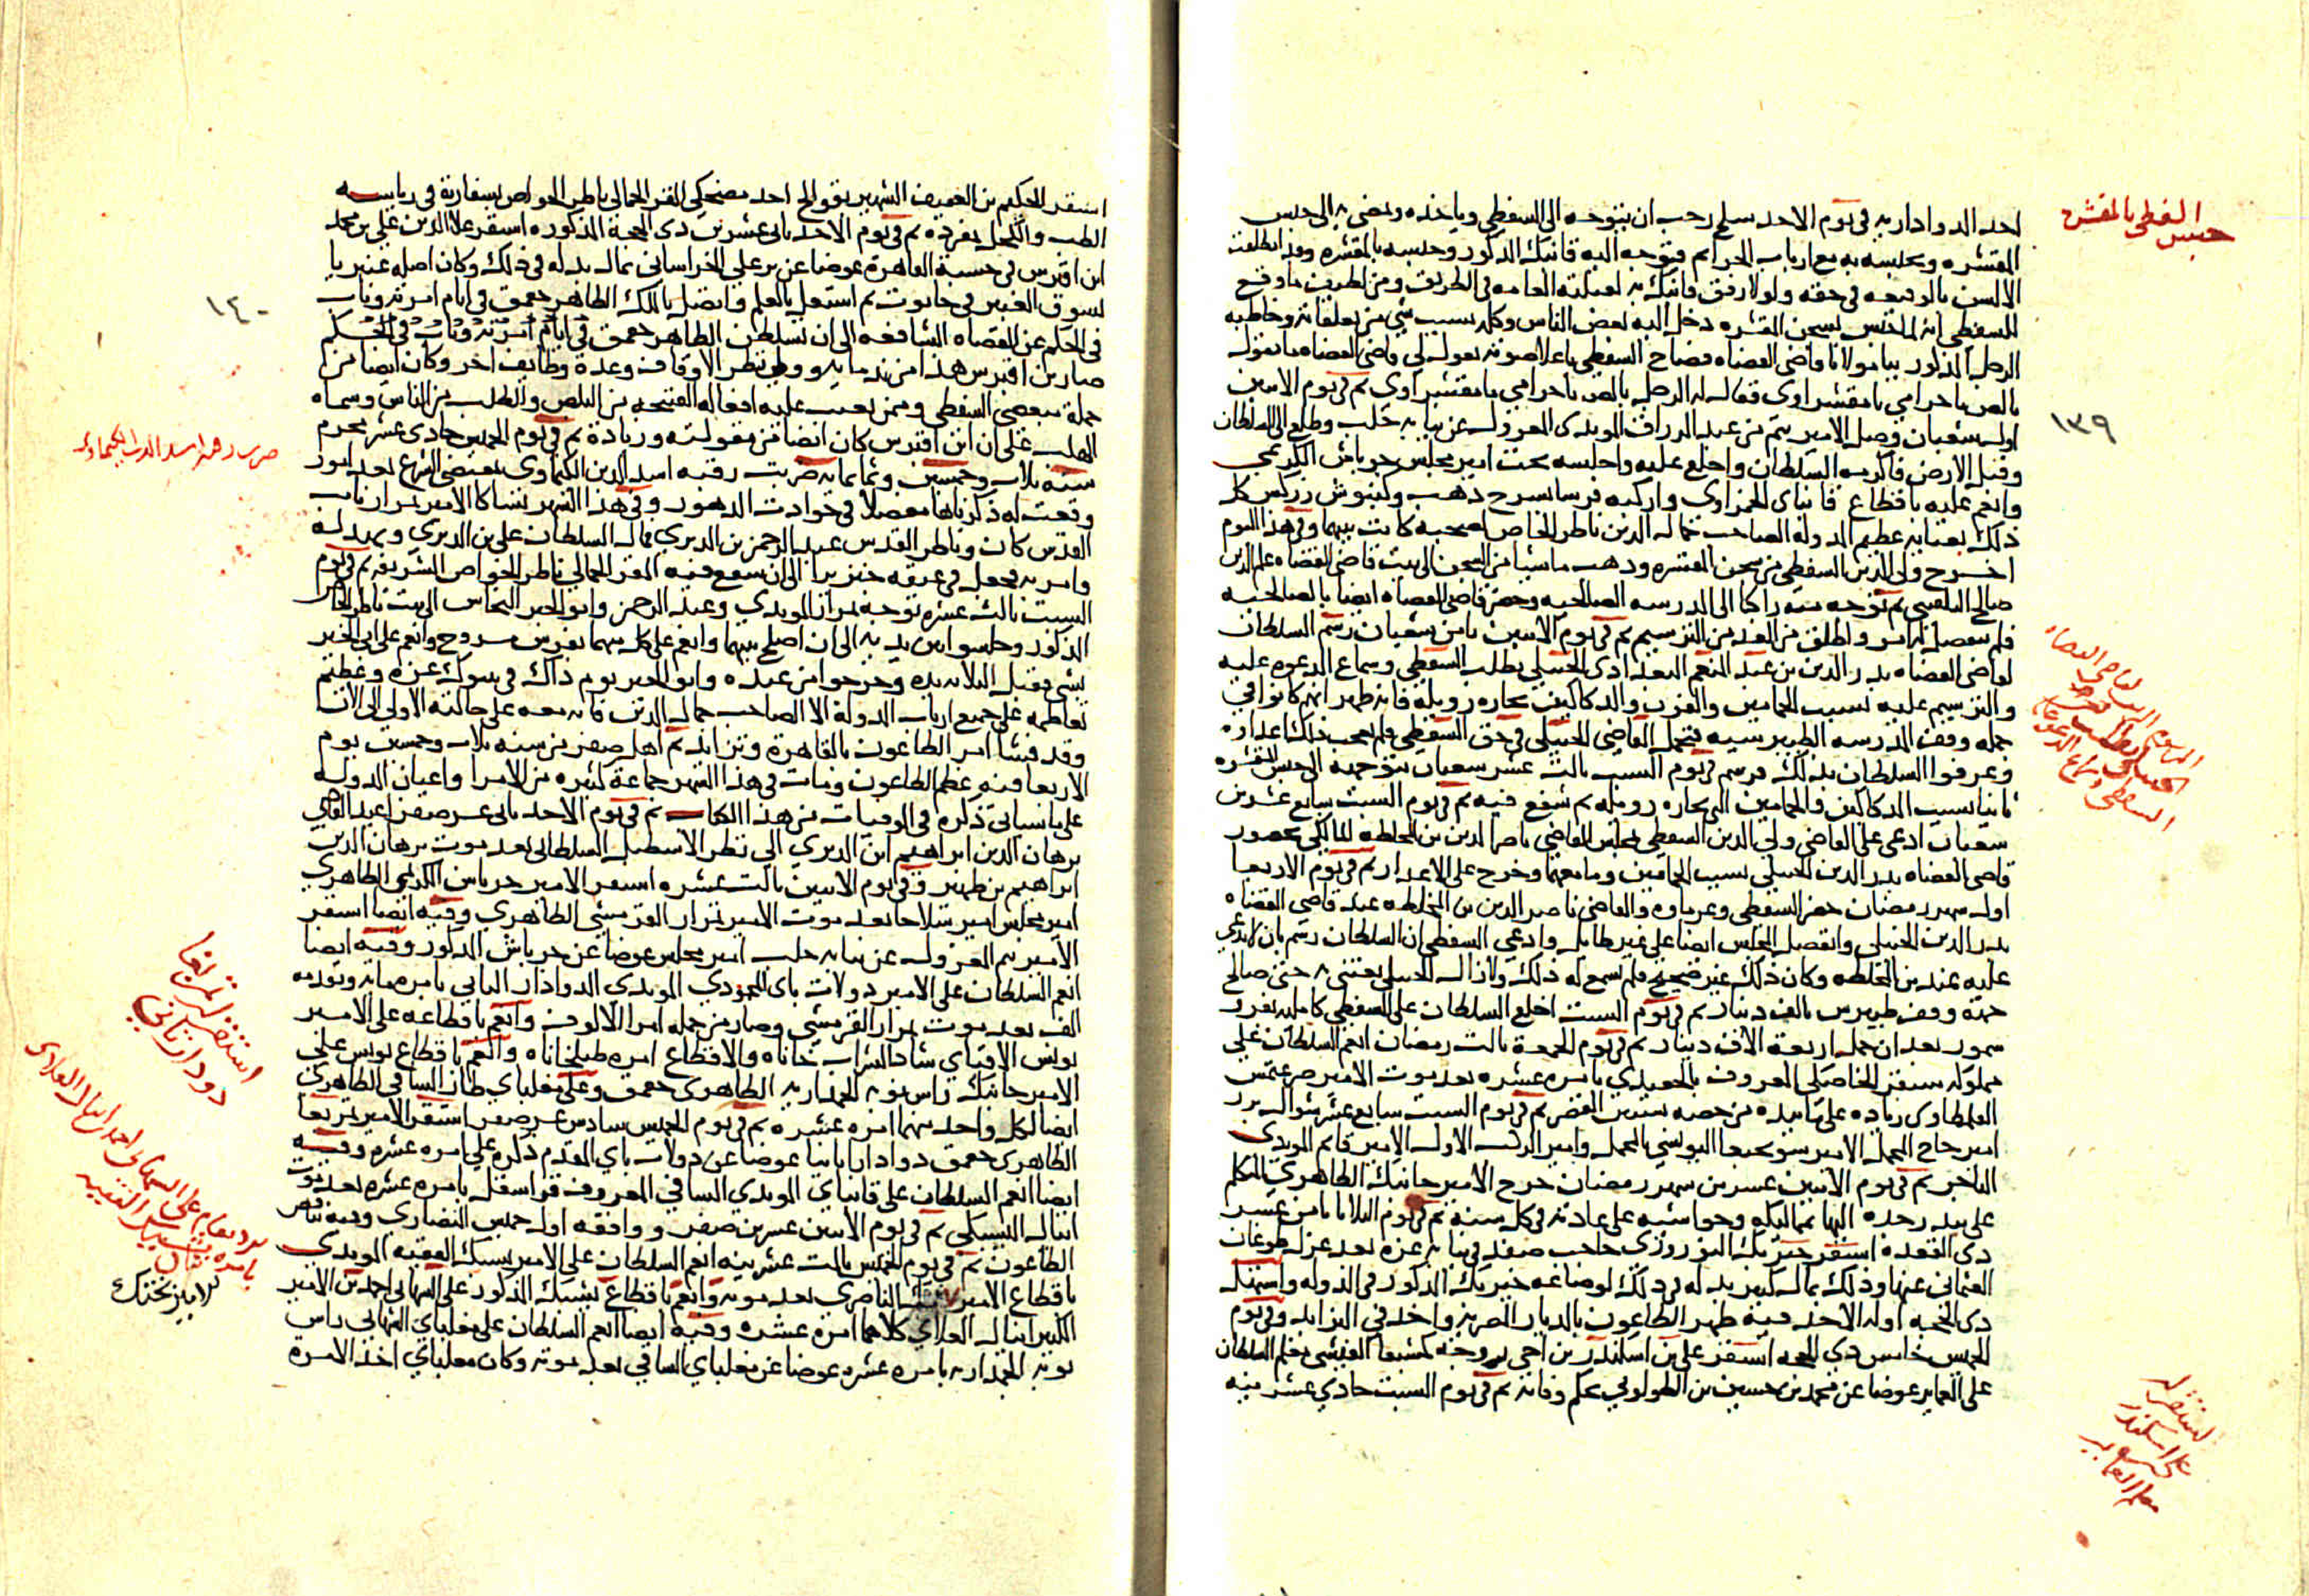 حبس السفطي بالمقشره
احد الدوادارية في يوم الاحد سلخ رجب ان يتوجه الى السفطي وياخذه ويمضي به الى حبس
المقشره ويحبسه به مع ارباب الجرايم فتوجه اليه قانبك المذكور وحبسه بالمقشره وقد انطلقت
الالسن بالوقيعه في حقه ولولا رفق قانبك به لقتلته العامه في الطريق ومن اظرف ما وقع
للسفطي انه لما حبس بسجن المقشره دخل اليه بعض الناس وكلمه بسبب شي من تعلقاته وخاطبه
الرجل المذكور بيا مولانا قاضي القضاه فصاح السفطي باعلا صوته تقول لي قاضي القضاه ما تقول
يا لص يا حرامي يا مقشراوي فقال له الرجل يا لص يا حرامي يا مقشراوي ثم في يوم الاثنين
١٣٩
اول شعبان وصل الامير تنم من عبد الرزاق المويدي المعزول عن نيابة حلب وطلع الى السلطان
وقبل الارض فاكرمه السلطان واخلع عليه واجلسه تحت امير مجلس جرباش الكريمي
وانعم عليه باقطاع قانباي الحمزاوي واركبه فرسا بسرج ذهب وكنبوش زركش كل
ذلك بعناية عظيم الدولة الصاحب جمال الدين ناظر الخاص لصحبه كانت بينهما وفي هذا اليوم
اخرج ولي الدين السفطي من سجن المقشره وذهب ماشيا من السجن الى بيت قاضي القضاه علم الدين
صالح البلقيني ثم توجه منه راكبا الى المدرسه الصالحيه وحضر قاضي القضاه ايضا بالصالحيه
فلم ينفصل له امر واطلق من الغد من الترسيم ثم في يوم الاثنين ثامن شعبان رسم السلطان
لقاضي القضاه بدر الدين بن عبد المنعم البغدادي الحنبلي بطلب السفطي وسماع الدعوه عليه
والترسيم عليه بسبب الحمامين والفرن والدكاكين بحاره زويله فانه ظهر انهم كانوا في
جمله وقف المدرسه الطيبرسيه فتحمل القاضي الحنبلي في حق السفطي فلم يعجب ذلك اعداءه
وعرفوا السلطان بذلك فرسم في يوم السبت ثالث عشر شعبان بتوجهه الى حبس المقشره
ثانيا بسبب الدكاكين والحمامين التي بحاره زويله ثم شفع فيه ثم في يوم السبت سابع عشرين
شعبان ادعى على القاضي ولي الدين السفطي بمجلس القاضي ناصر الدين بن المخلطه المالكي بحضور
قاضي القضاه بدر الدين الحنبلي بسبب الحمامين وما معهما وخرج على الاعذار ثم في يوم الاربعا
اول شهر رمضان حضر السفطي وغرماوه والقاضي ناصر الدين بن المخلطه عند قاضي القضاه
بدر الدين الحنبلي وانفصل المجلس ايضا على غير طايل وادعى السفطي ان السلطان رسم بان لا يدعى
عليه عند بن المخلطه وكان ذلك غير صحيح فلم يسمع له ذلك ولازال الحنبلي يعتني به حتى صالح
جهة وقف طيبرس بالف دينار ثم في يوم السبت اخلع السلطان على السفطي كامليه بفرو
سمور بعد ان حمل اربعة الاف دينار ثم في يوم الجمعة ثالث رمضان انعم السلطان على
مملوكه سنقر الخاصكي المعروف بالجعيدي بامره عشره بعد موت الامير صرغتمش
القلمطاوي زياده على ما بيده من حصه ثم في يوم السبت سابع عشر شوال برز
امير حاج المحمل الامير سونجبغا اليونسي بالمحمل وامير الركب الاول الامير قايم المويدي
التاجر ثم في يوم الاثنين عشرين شهر رمضان خرج الامير جانبك الظاهري المتكلم
على بندر جده اليها بمماليكه وحواشيه على عادته في كل سنة ثم في يوم الثلاثا ثامن عشر
دي القعده استقر خيربك النوروزي حاجب صفد في نيابة غزه بعد عزل طوغان
العثماني عنها وذلك بمال كبير بذله في ذلك لوضاعه خيربك المذكور في الدوله واستهل
دي الحجه اوله الاحد فيه ظهر الطاعون بالديار المصريه واخذ في التزايد وفي يوم
الخميس خامس دي الحجه استقر علي بن اسكندر بن اخي زوجه كمشبغا الفيسي معلم السلطان
على العماير عوضا عن محمد بن حسين بن الطولوني بحكم وفاته ثم في يوم السبت حادي عشر منه
المرسوم الى قاضي القضاه
السفطي وسماع الدعوه
استقرار
علي اسكندر
معلم العماير
استقر الحكيم بن العفيف الشهير بقوالح احد مضحكي المقر الجمالي ناظر الخواص بسفارته في رياسه
الطب والكحل بمفرده ثم في يوم الاحد ثاني عشرين دي الحجة المذكوره استقر علا الدين علي بن محمد
ابن اقبرس في حسبة القاهرة عوضا عن يرعلي الخراساني بمال بذله في ذلك وكان اصله عنبريا
١٤٠
بسوق العنبر في حانوت ثم اشتغل بالعلم واتصل بالملك الظاهر جقمق في ايام امرته وناب
في الحكم عن القضاه الشافعيه الى ان تسلطن الظاهر جقمق في ايام امرته وناب في الحكم
صار بن اقبرس هذا من ندمايه وولي نظر الاوقاف وعدة وظايف اخر وكان ايضا من
جملة مبغضي السفطي وممن يعيب عليه افعاله القبيحه من البلص والطلب من الناس وسماه
الهلب على ان ابن اقبرس كان ايضا من مقولته وزيادة ثم في يوم الخميس حادي عشر محرم
سنة ثلاث وخمسين وثمانمايه ضربت رقبه اسد الدين الكيماوي بمقتضى الشرع بعد امور
وقعت له ذكرناها مفصلا في حوادث الدهور وفي هذا الشهر تشاكا الامير تمراز نايب
القدس كان وناظر القدس عبد الرحمن بن الديري فمال السلطان على بن الديري وبهدله
وامر به فجعل في عنقه جنزيرا الى ان شفع فيه المقر الجمالي ناظر الخواص الشريفه ثم في يوم
السبت ثالث عشره توجه تمراز المويدي وعبد الرحمن وابو الخير النحاس الى بيت ناظر الخاص
المذكور وجلسوا بين يديه الى ان اصلح بينهما وانعم على كل منهما بفرس مسروج وانعم على ابي الخير
بشي فقبل الثلاثه يده وخرجوا من عنده وابو الخير يوم ذاك في مبدا عزه وعظم
تعاظمه على جميع ارباب الدولة الا الصاحب جمال الدين فانه معه على حالته الاولى الى الان
وقد فشا امر الطاعون بالقاهرة وتزايد ثم اهل صفر من سنه ثلاث وخمسين يوم
الاربعا فيه عظم الطاعون ومات في هذا الشهر جماعة كثيره من الامرا واعيان الدوله
على ما سياتي ذكره في الوفيات من هذا الكتاب ثم في يوم الاحد ثاني عشر صفر اعيد القاضي
برهان الدين ابراهيم ابن الديري الى نظر الاسطبل السلطاني بعد موت برهان الدين
ابراهيم بن ظهير وفي يوم الاثنين ثالث عشره استقر الامير جرباش الكريمي الظاهري
امير مجلس امير سلاح بعد موت الامير تمراز القرمشي الظاهري وفيه ايضا استقر
الامير تنم المعزول عن نيابه حلب امير مجلس عوضا عن جرباش المذكور وفيه ايضا
انعم السلطان على الامير دولات باي المحمودي المويدي الدوادار الثاني بامره مايه وتقدمه
الف بعد موت تمراز القرمشي وصار من جمله امرا الالوف وانعم باقطاعه على الامير
يونس الاقباي شاد الشراب خاناه والاقطاع امره طبلخاناه وانعم باقطاع يونس على
الامير جانبك راس نوبه الجمداريه الظاهري جقمق وعلى مغلباي طاز الساقي الظاهري
ايضا لكل واحد منهما امره عشره ثم في يوم الخميس سادس عشر صفر استقر الامير تمربغا
الظاهري جقمق دوادارا ثانيا عوضا عن دولات باي المقدم ذكره على امره عشره وفيه
ايضا انعم السلطان على قانباي المويدي الساقي المعروف قراسقل بامره عشره بعد موت
اينال اليشبكي ثم في يوم الاثنين عشرين صفر ووافقه اول خمسين النصارى وفيه تناقص
الطاعون ثم في يوم الخميس ثالث عشرينه انعم السلطان على الامير يشبك الفقيه المويدي
باقطاع الامير الناصري بعد موته وانعم باقطاع يشبك المذكور على الشهابي احمد بن الامير
الكبير اينال العلاي كلاهما امرة عشره وفيه ايضا انعم السلطان على مغلباي الشهابي راس
نوبه الجمداريه بامره عشره عوضا عن مغلباي الساقي بعد موته وكان مغلباي اخذ الامره
ضرب رقبة اسد الدين الكيماوي
استقرار تمربغا
دوادار ثاني